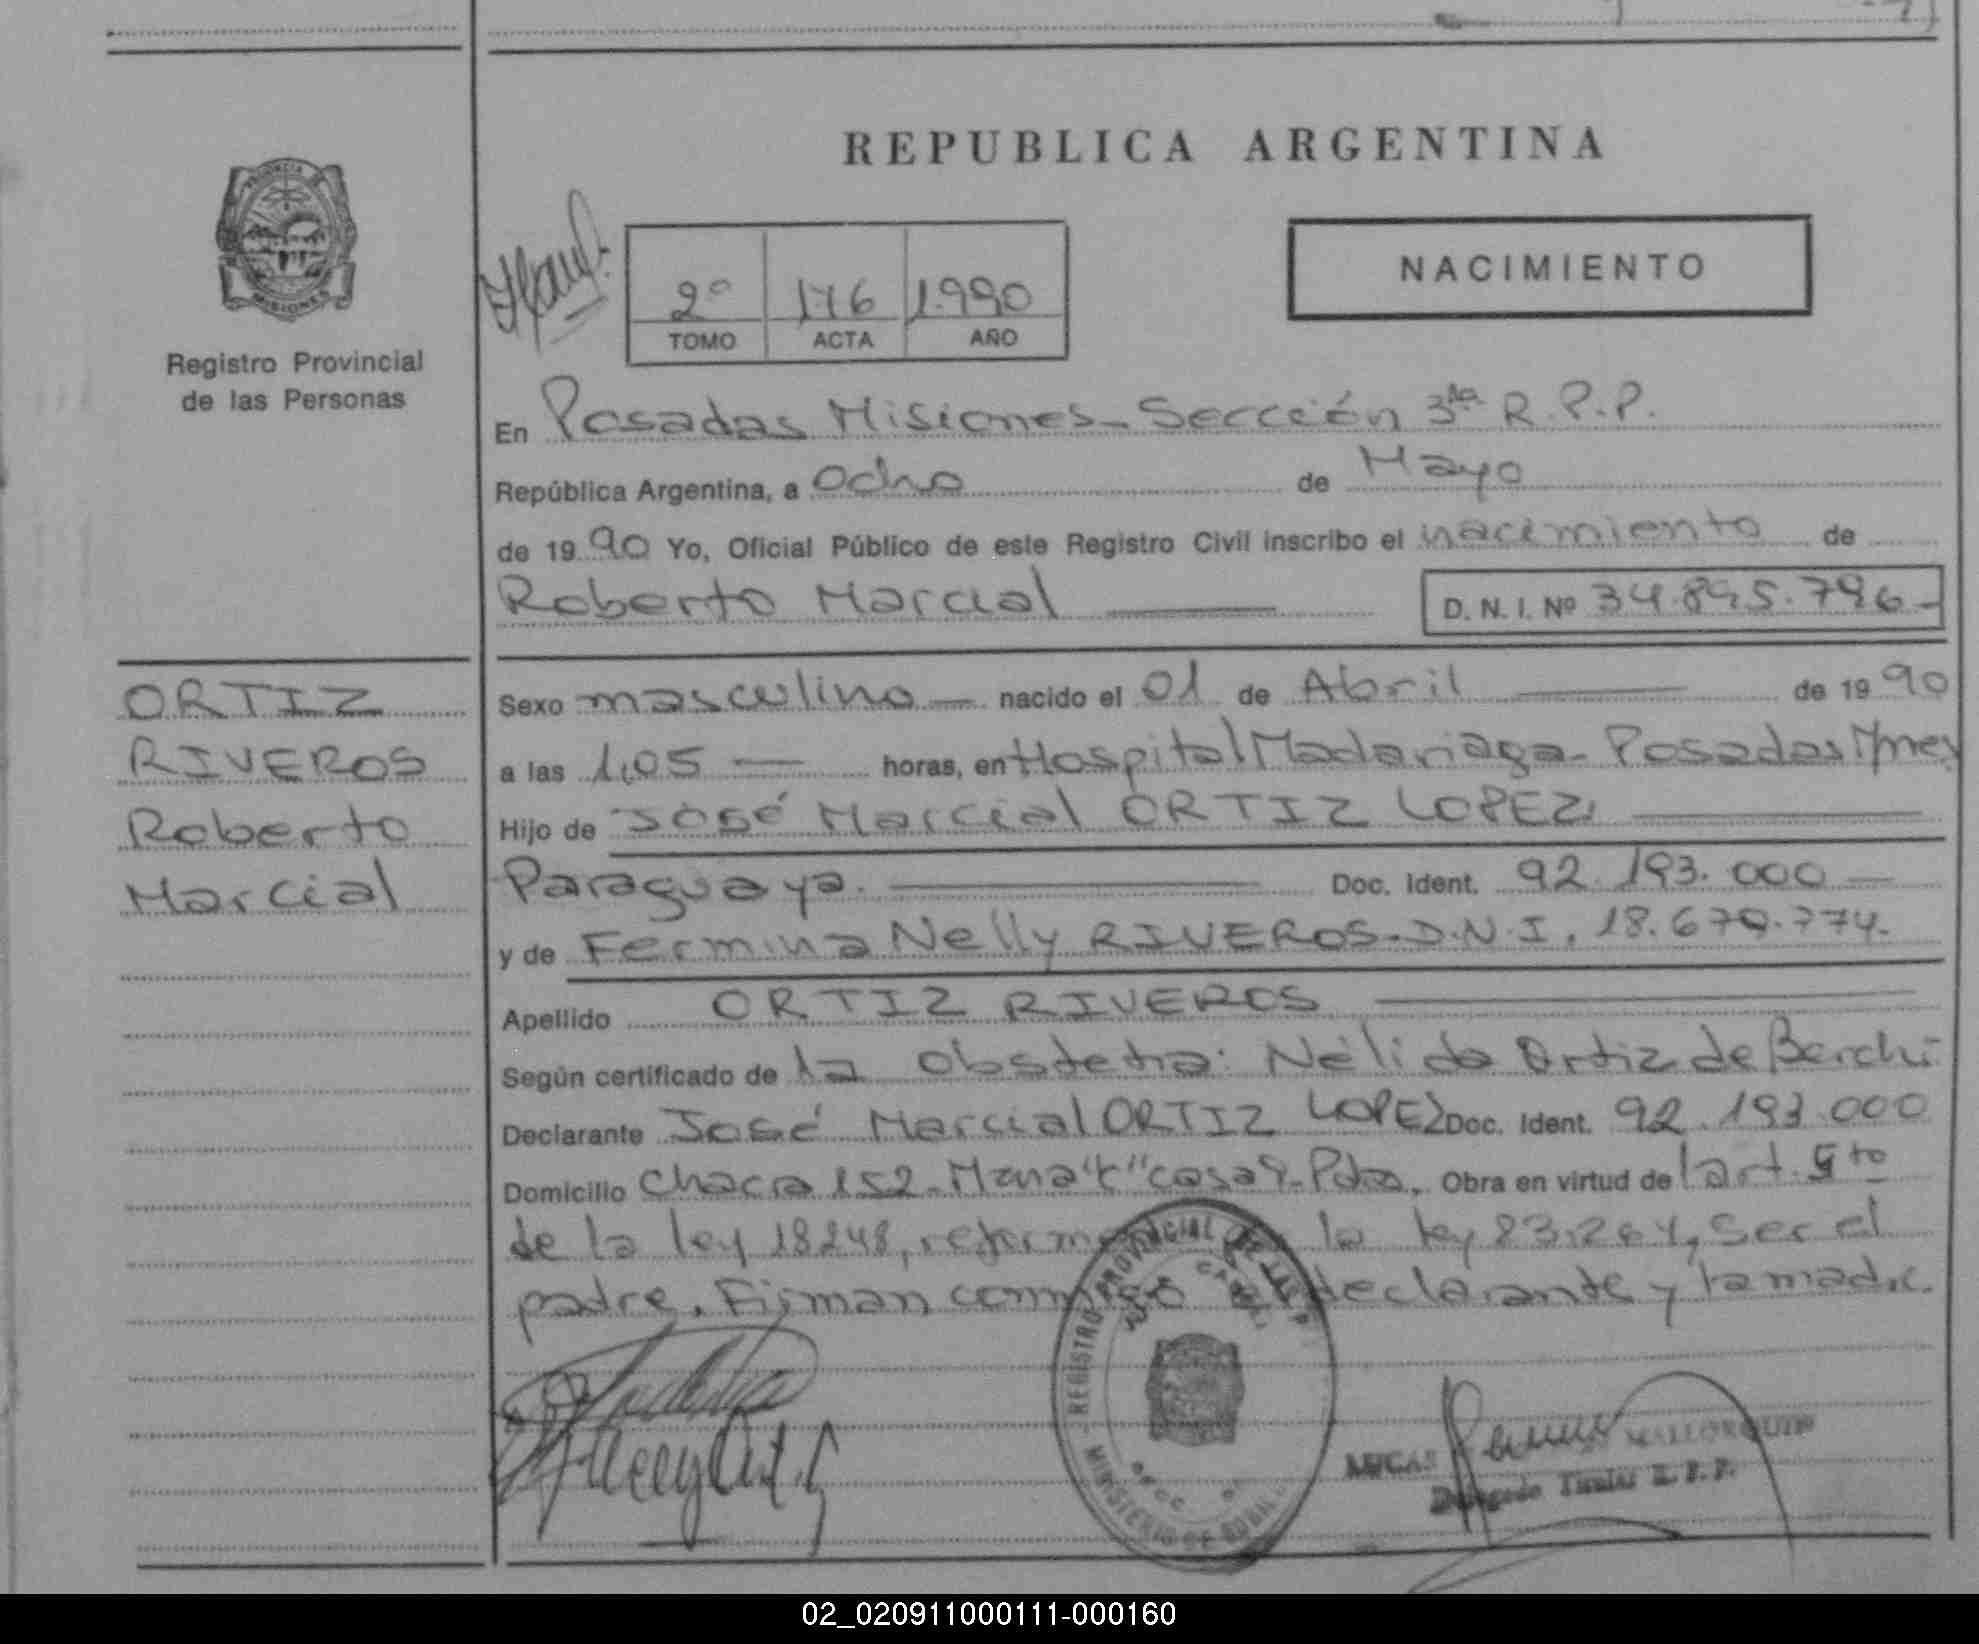 REPUBLICA ARGENTINA
PROVINCIA DE
MISIONES
Registro Provincial
de las Personas
2º 176 1.990
TOMO ACTA AÑO
NACIMIENTO
En Posadas Misiones - Sección 3ra R.P.P.
República Argentina, a Ocho de Mayo
de 1990 Yo, Oficial Público de este Registro Civil inscribo el nacimiento de
Roberto Marcial D. N. I. Nº 34.895.796-
ORTIZ
RIVEROS
Roberto
Marcial
Sexo masculino — nacido el 01 de Abril — de 1990
a las 1,05 — horas, en Hospital Madariaga - Posadas Mnes
Hijo de José Marcial ORTIZ LOPEZ
Paraguaya. — Doc. Ident. 92.193.000 —
y de Fermina Nelly RIVEROS - D.N.I. 18.670.774.
Apellido ORTIZ RIVEROS
Según certificado de la Obstetra: Nélida Ortiz de Berchi
Declarante José Marcial ORTIZ LOPEZ Doc. Ident. 92.193.000
Domicilio Chacra 152 - Mzna casa Pdas. Obra en virtud de l art. 5to
de la ley 18248, la ley 23.264, ser el
padre. Firman conmigo declarante y la madre.
REGISTRO PROVINCIAL DE LAS
MINISTERIO DE
MALLORQUIN
Delegado Titular R. P. P.
02_020911000111-000160